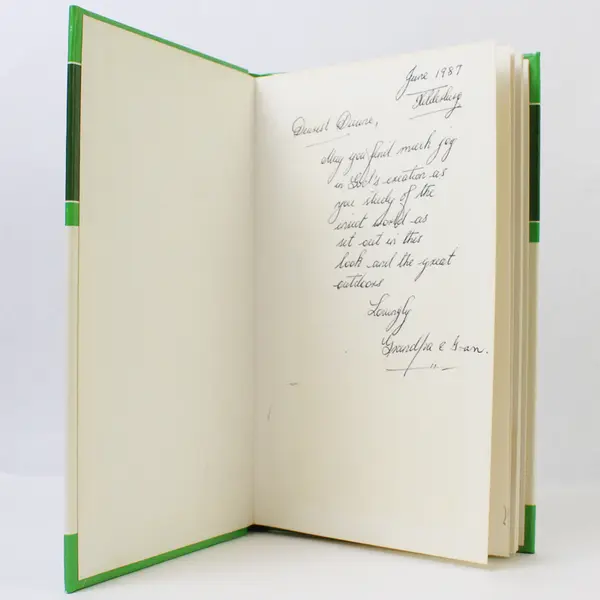 June 1987
Dearest
May you find much joy
in God's creation as
you study of the
insect world as
set out in this
book and the great
outdoors
Lovingly
Grandpa & Gran.